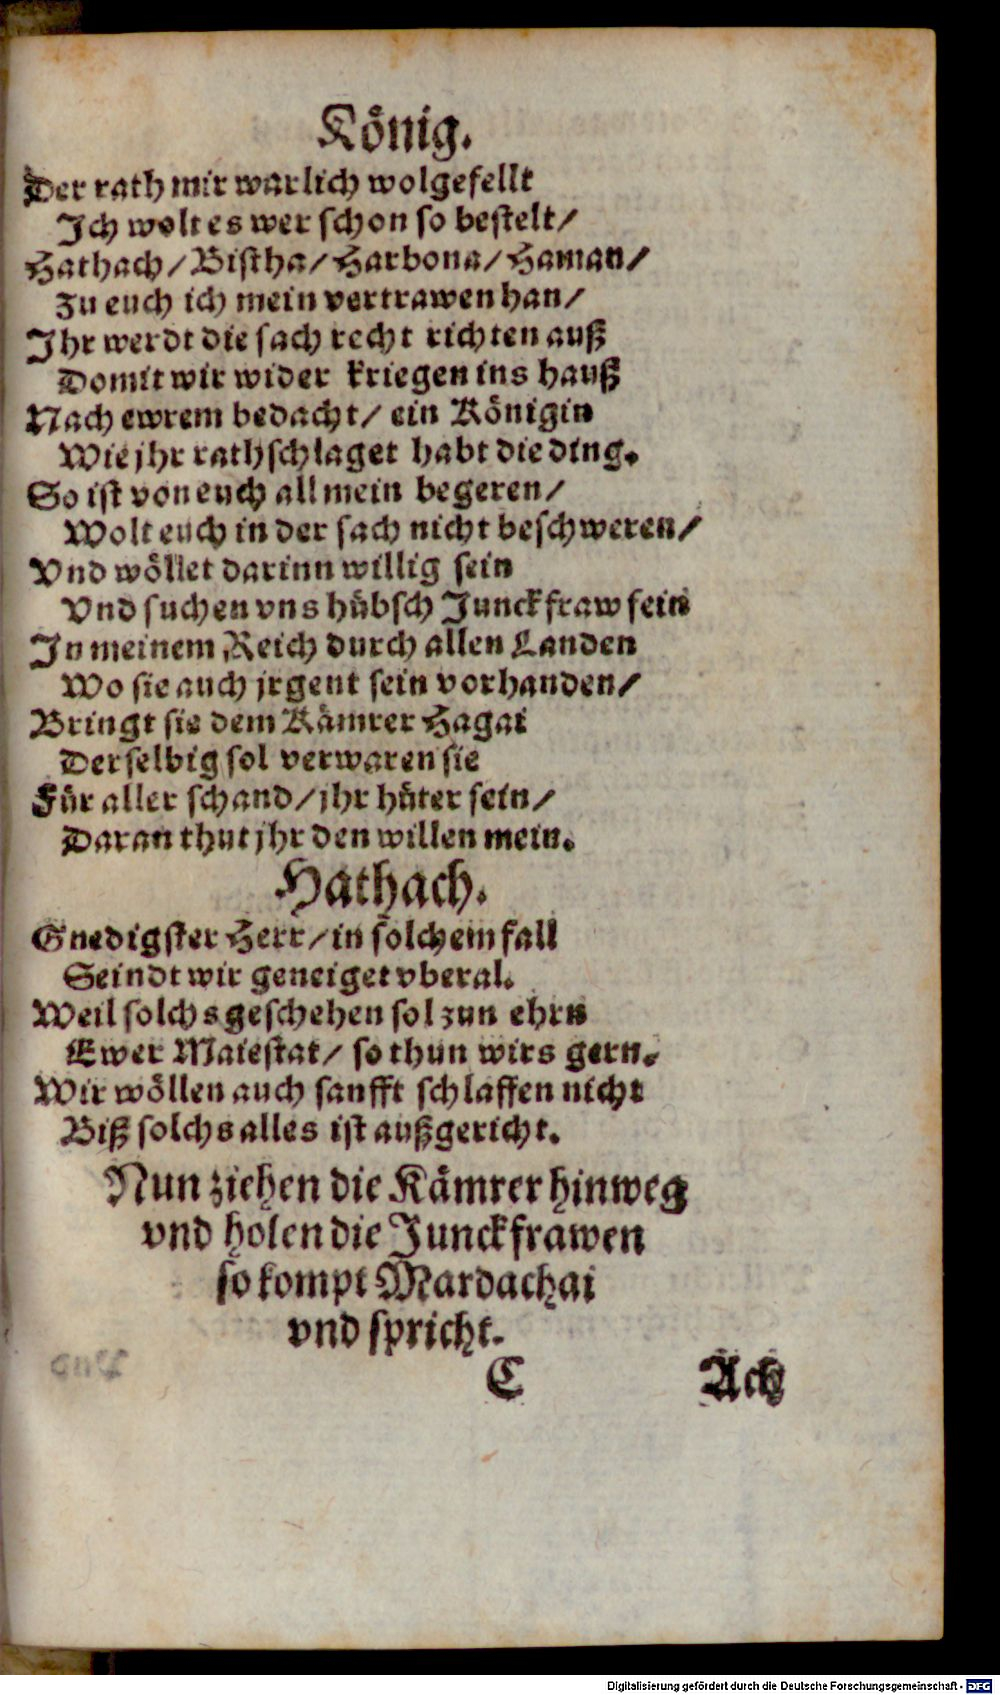 König.
Der rath mir warlich wolgefellt
Ich wolt es wer schon so bestelt/
Hathach/ Bistha/ Harbona/ Haman/
Zu euch ich mein vertrawen han/
Ihr werdt die sach recht richten auß
Domit wir wider kriegen ins hauß
Nach ewrem bedacht/ ein Königin
Wie jhr rathschlaget habt die ding.
So ist von euch all mein begeren/
Wolt euch in der sach nicht beschweren/
Vnd wöllet darinn willig sein
Vnd suchen vns hübsch Junckfraw fein
In meinem Reich durch allen Landen
Wo sie auch jrgent sein vorhanden/
Bringt sie dem Kämrer Hagai
Derselbig sol verwaren sie
Für aller schand/ jhr hüter sein/
Daran thut jhr den willen mein.
Hathach.
Gnedigster Herr/ in solchem fall
Seindt wir geneiget vberal.
Weil solchs geschehen sol zun ehrn
Ewer Maiestat/ so thun wirs gern.
Wir wöllen auch sanfft schlaffen nicht
Biß solchs alles ist außgericht.
Nun ziehen die Kämrer hinweg
vnd holen die Junckfrawen
so kompt Mardachai
vnd spricht.
C Ach
Digitalisierung gefördert durch die Deutsche Forschungsgemeinschaft - DFG